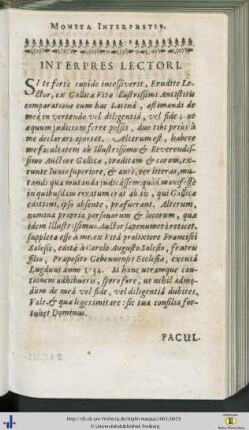 MONITA INTERPRETIS.
INTERPRES LECTORI.
SI te fortè cupido incesserit, Erudite Le-
ctor, ex Gallica Vita illustrissimi Antistitis
comparatione cum hac Latina, æstimandi de
mea in vertendo vel diligentiâ, vel fide; ut
æquum judicium ferre possis, duo tibi priùs à
me declarari oportet. Alterum est, habere
me facultatem ab Illustrissimo & Reverendis-
simo Auctore Gallicæ, traditam & coram, ex-
eunte Iunio superiore, & antè, per literas, mu-
tandi quæ mutanda judicâssem; quòd manifestè
in quibusdam exstat erat ab iis, qui Gallicæ
editioni, ipso absente, præfuerant. Alterum,
nomina propria personarum & locorum, quæ
idem Illustrissimus Auctor sæpenumerò reticet,
suppleta esse à me, ex Vita prolixiore Francisci
Salesii, edita à Carolo Augusto Salesio, fratris
filio, Præposito Gebennensis Ecclesiæ, excusâ
Lugduni anno 1634. Si hanc utramque cau-
tionem adhibueris, spero fore, ut nihil admo-
dùm de meâ vel fide, vel diligentiâ dubites.
Vale, & quæ leges imitare: sic tua consilia for-
tunet Dominus.
FACUL-
http://dl.ub.uni-freiburg.de/diglit/maupas1663/0025
© Universitätsbibliothek Freiburg